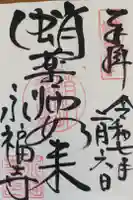 奉拝
令和七年
一月六日
蛸薬師如来
永福寺